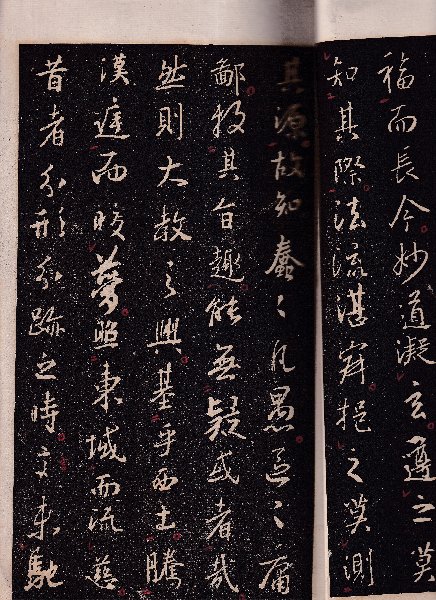 福而長今妙道凝玄遵之莫
知其際法流湛寂挹之莫測
其源故知蠢々凡愚區々庸
鄙投其旨趣能無疑或者哉
然則大教之興基乎西土騰
漢庭而皎夢照東域而流慈
昔者分形分跡之時言未馳